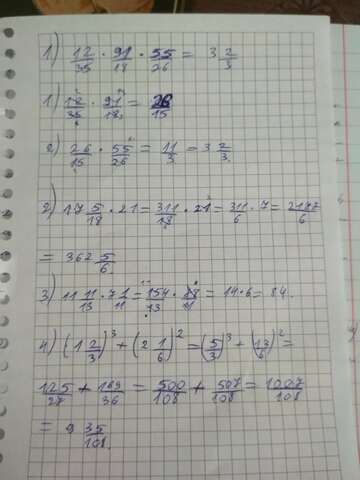 1) 12/35 · 91/18 · 55/26 = 3 2/3
1) 12/35 · 91/18 = 26/15
2) 26/15 · 55/26 = 11/3 = 3 2/3
2) 17 5/18 · 21 = 311/18 · 21 = 311/6 · 7 = 2177/6
= 362 5/6
3) 11 11/13 · 7 1/11 = 154/13 · 78/11 = 14 · 6 = 84.
4) (1 2/3)³ + (2 1/6)² = (5/3)³ + (13/6)² =
125/27 + 169/36 = 500/108 + 507/108 = 1007/108
= 9 35/108.